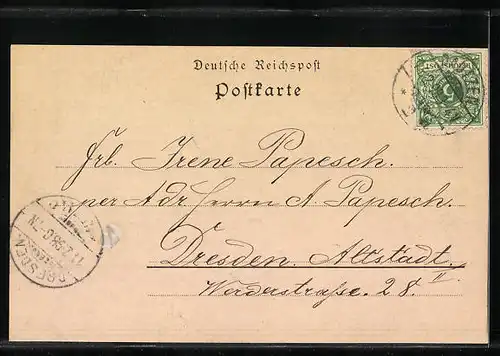 Deutsche Reichspost
Postkarte
Frl. Irene Papesch.
per Adr. Herrn A. Papesch.
Dresden Altstadt.
II.
Werderstraße. 28.
REICHSPOST
5
DRESDEN